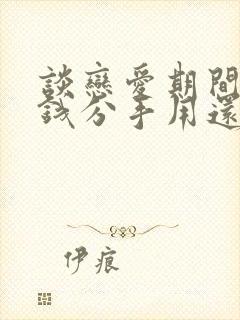 談戀愛期間
錢分手用還
伊痕